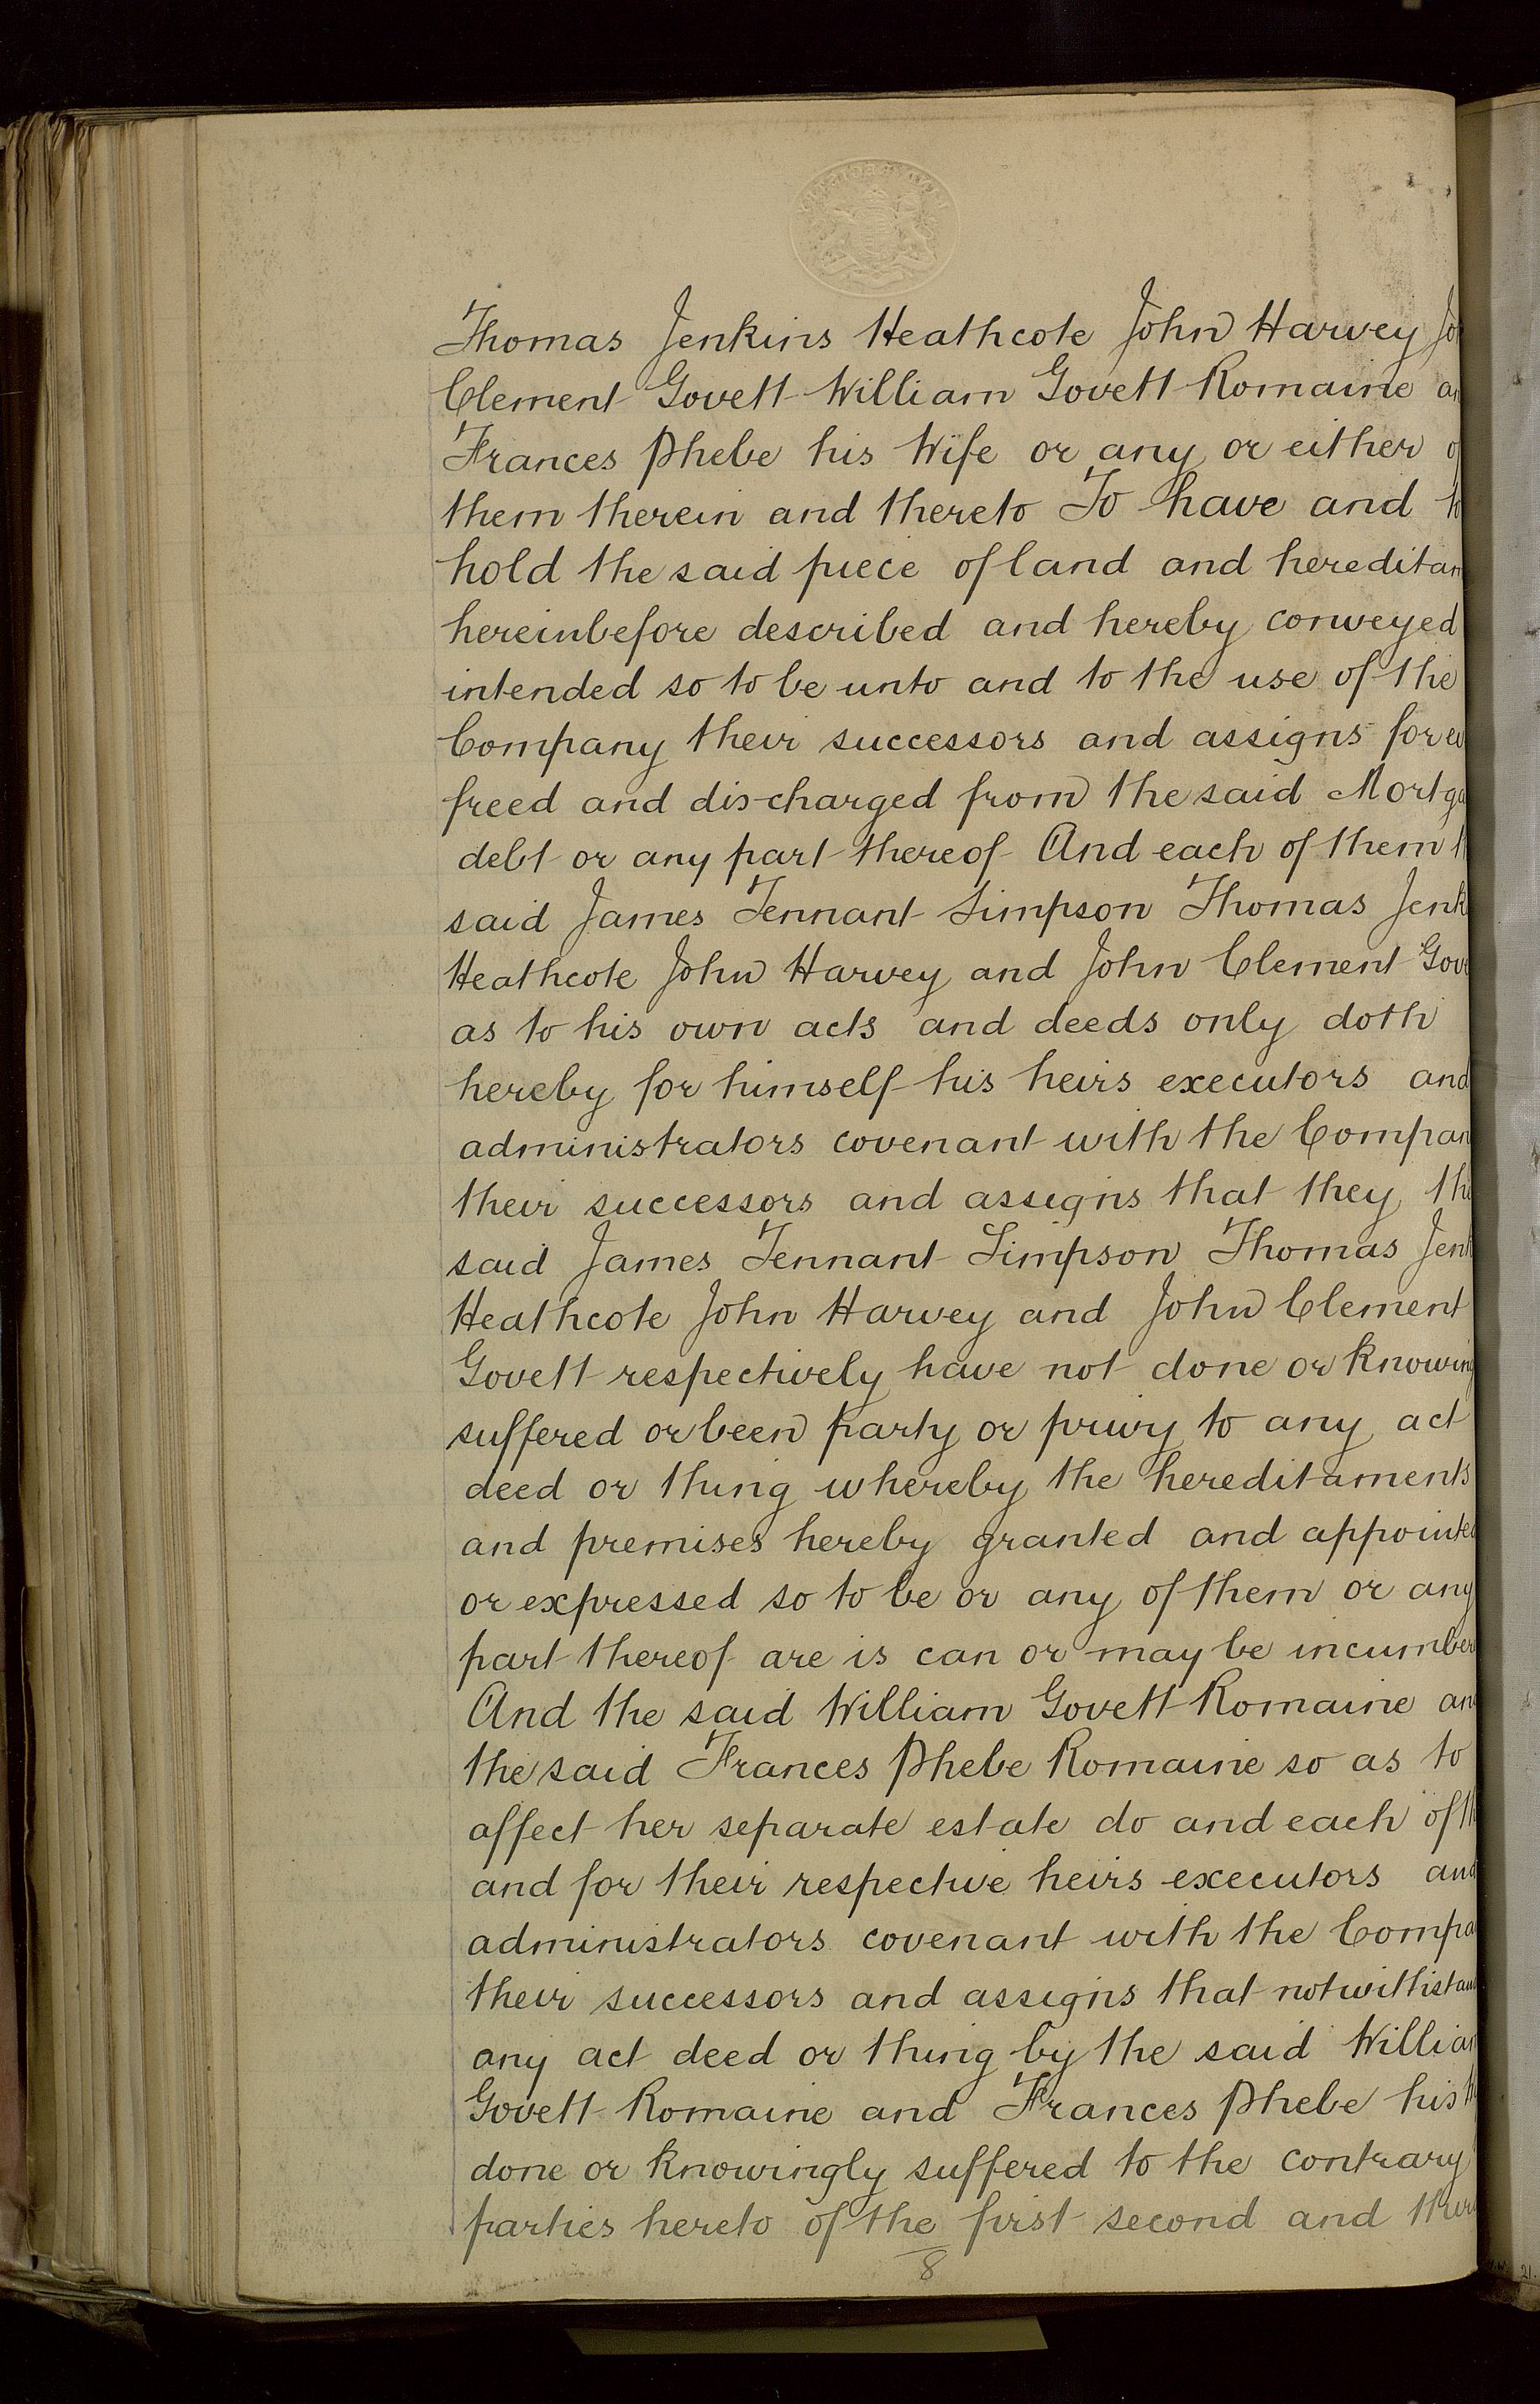 Thomas Jenkins Heathcote John Harvey Jo
Clement Govett William Govett Romaine an
Frances Phebe his Wife or any or either of
them therein and thereto To have and to
hold the said piece of land and hereditam
hereinbefore described and hereby conveyed
intended so to be unto and to the use of the
Company their successors and assigns for ev
freed and discharged from the said Mortga
debt or any part thereof And each of them th
said James Tennant Simpson Thomas Jenk
Heathcote John Harvey and John Clement Gove
as to his own acts and deeds only doth
hereby for himself his heirs executors and
administrators covenant with the Compan
their successors and assigns that they the
said James Tennant Simpson Thomas Jenk
Heathcote John Harvey and John Clement
Govett respectively have not done or knowing
suffered or been party or privy to any act
deed or thing whereby the hereditaments
and premises hereby granted and appointed
or expressed so to be or any of them or any
part thereof are is can or may be incumber
And the said William Govett Romaine and
the said Frances Phebe Romaine so as to
affect her separate estate do and each of th
and for their respective heirs executors and
administrators covenant with the Compa
their successors and assigns that notwithstan
any act deed or thing by the said William
Govett Romaine and Frances Phebe his
done or knowingly suffered to the contrary
parties hereto of the first second and thir
8